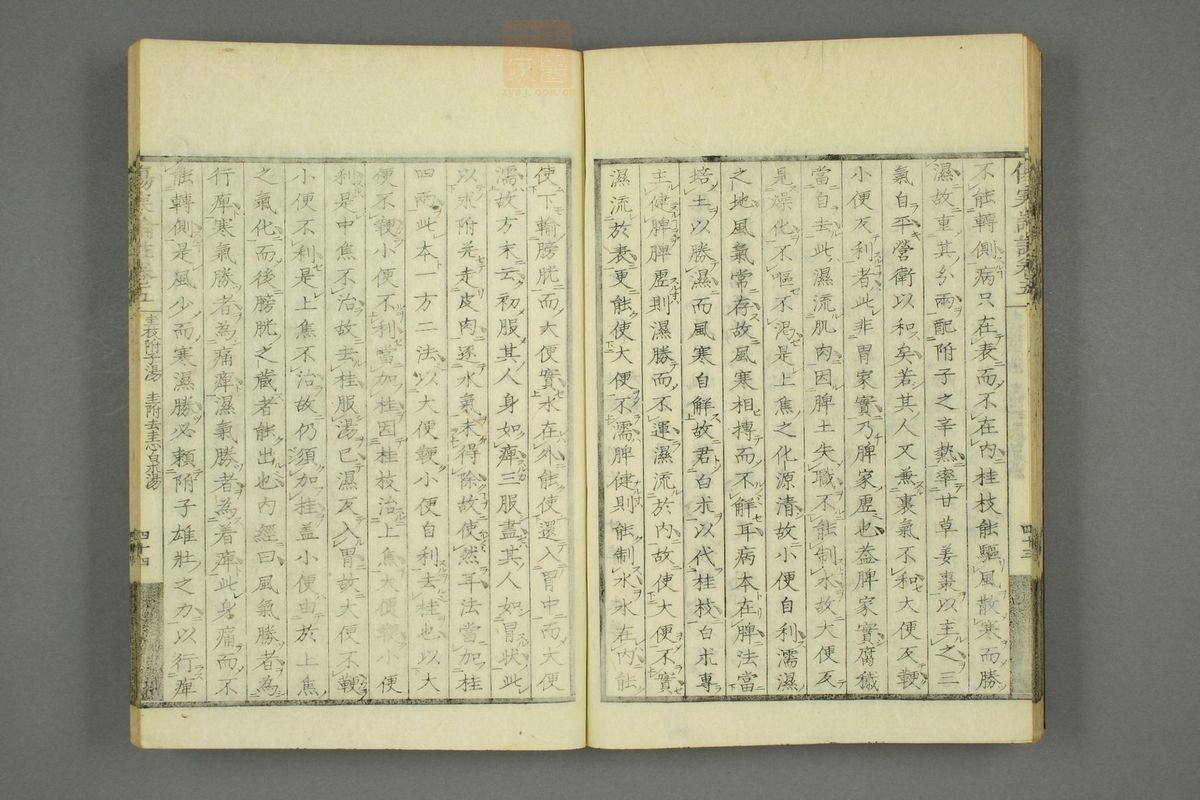 不能轉側病只在表而不在內桂枝能驅風散寒而勝
濕故重其分兩配附子之辛熱率甘草姜棗以主之三
氣自平營衛以和矣若其人又兼裏氣不和大便反鞕
小便反利者此非胃家實乃脾家虛也蓋脾家實腐穢
當自去此濕流肌肉因脾土失職不能制水故大便反
見燥化不嘔不渴是上焦之化源清故小便自利濡濕
之地風氣常存故風寒相搏而不解耳病本在脾法當
培土以勝濕而風寒自解故君白朮以代桂枝白朮專
主健脾脾虛則濕勝而不運濕流於內故使大便不實
濕流於表更能使大便不濡脾健則能制水水在內能
使下輸膀胱而大便實水在外能使還入胃中而大便
濡故方末云初服其人身如痺三服盡其人如冒狀此
以朮附并走皮肉逐水氣未得除故使然耳法當加桂
四兩此本一方二法以大便鞕小便自利去桂也以大
便不鞕小便不利當加桂因桂枝治上焦大便鞕小便
利是中焦不治故去桂服湯已濕反入胃故大便不鞕
小便不利是上焦不治故仍須加桂蓋小便由於上焦
之氣化而後膀胱之藏者能出也內經曰風氣勝者為
行痺寒氣勝者為痛痺濕氣勝者為着痺此身痛而不
能轉側是風少而寒濕勝必賴附子雄壯之力以行痺
傷寒論註卷五
桂枝附子湯 桂附去桂加白朮湯
四十四
四十三
zysj.com.cn